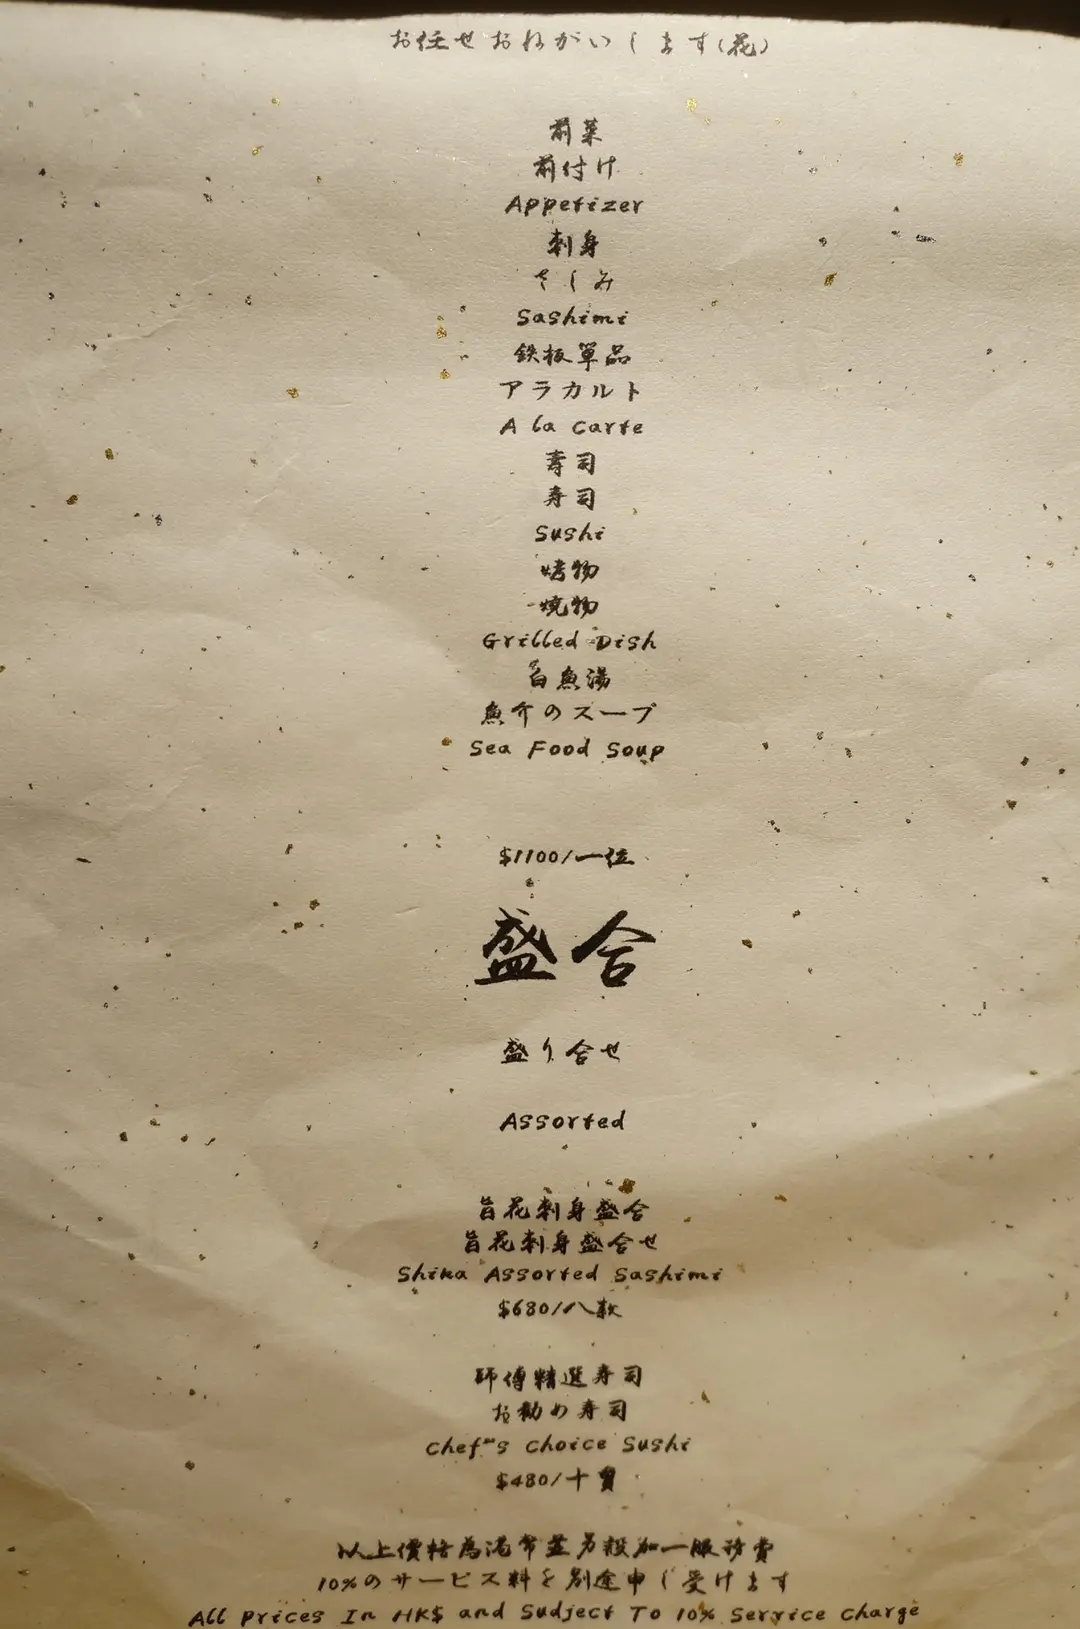 お任せおねがいします(花)
前菜
前付け
Appetizer
刺身
さしみ
Sashimi
鉄板單品
アラカルト
A la Carte
壽司
寿司
Sushi
烤物
焼物
Grilled Dish
白魚湯
魚介のスープ
Sea Food Soup
$1100/一位
盛合
盛り合せ
Assorted
旨花刺身盛合
旨花刺身盛合せ
Shika Assorted Sashimi
$680/八款
師傅精選寿司
お勧め寿司
Chef"s Choice Sushi
$480/十貫
以上價格為港幣並另設加一服務費
10%のサービス料を別途申し受けます
All Prices In HK$ and Sudject To 10% Service Charge